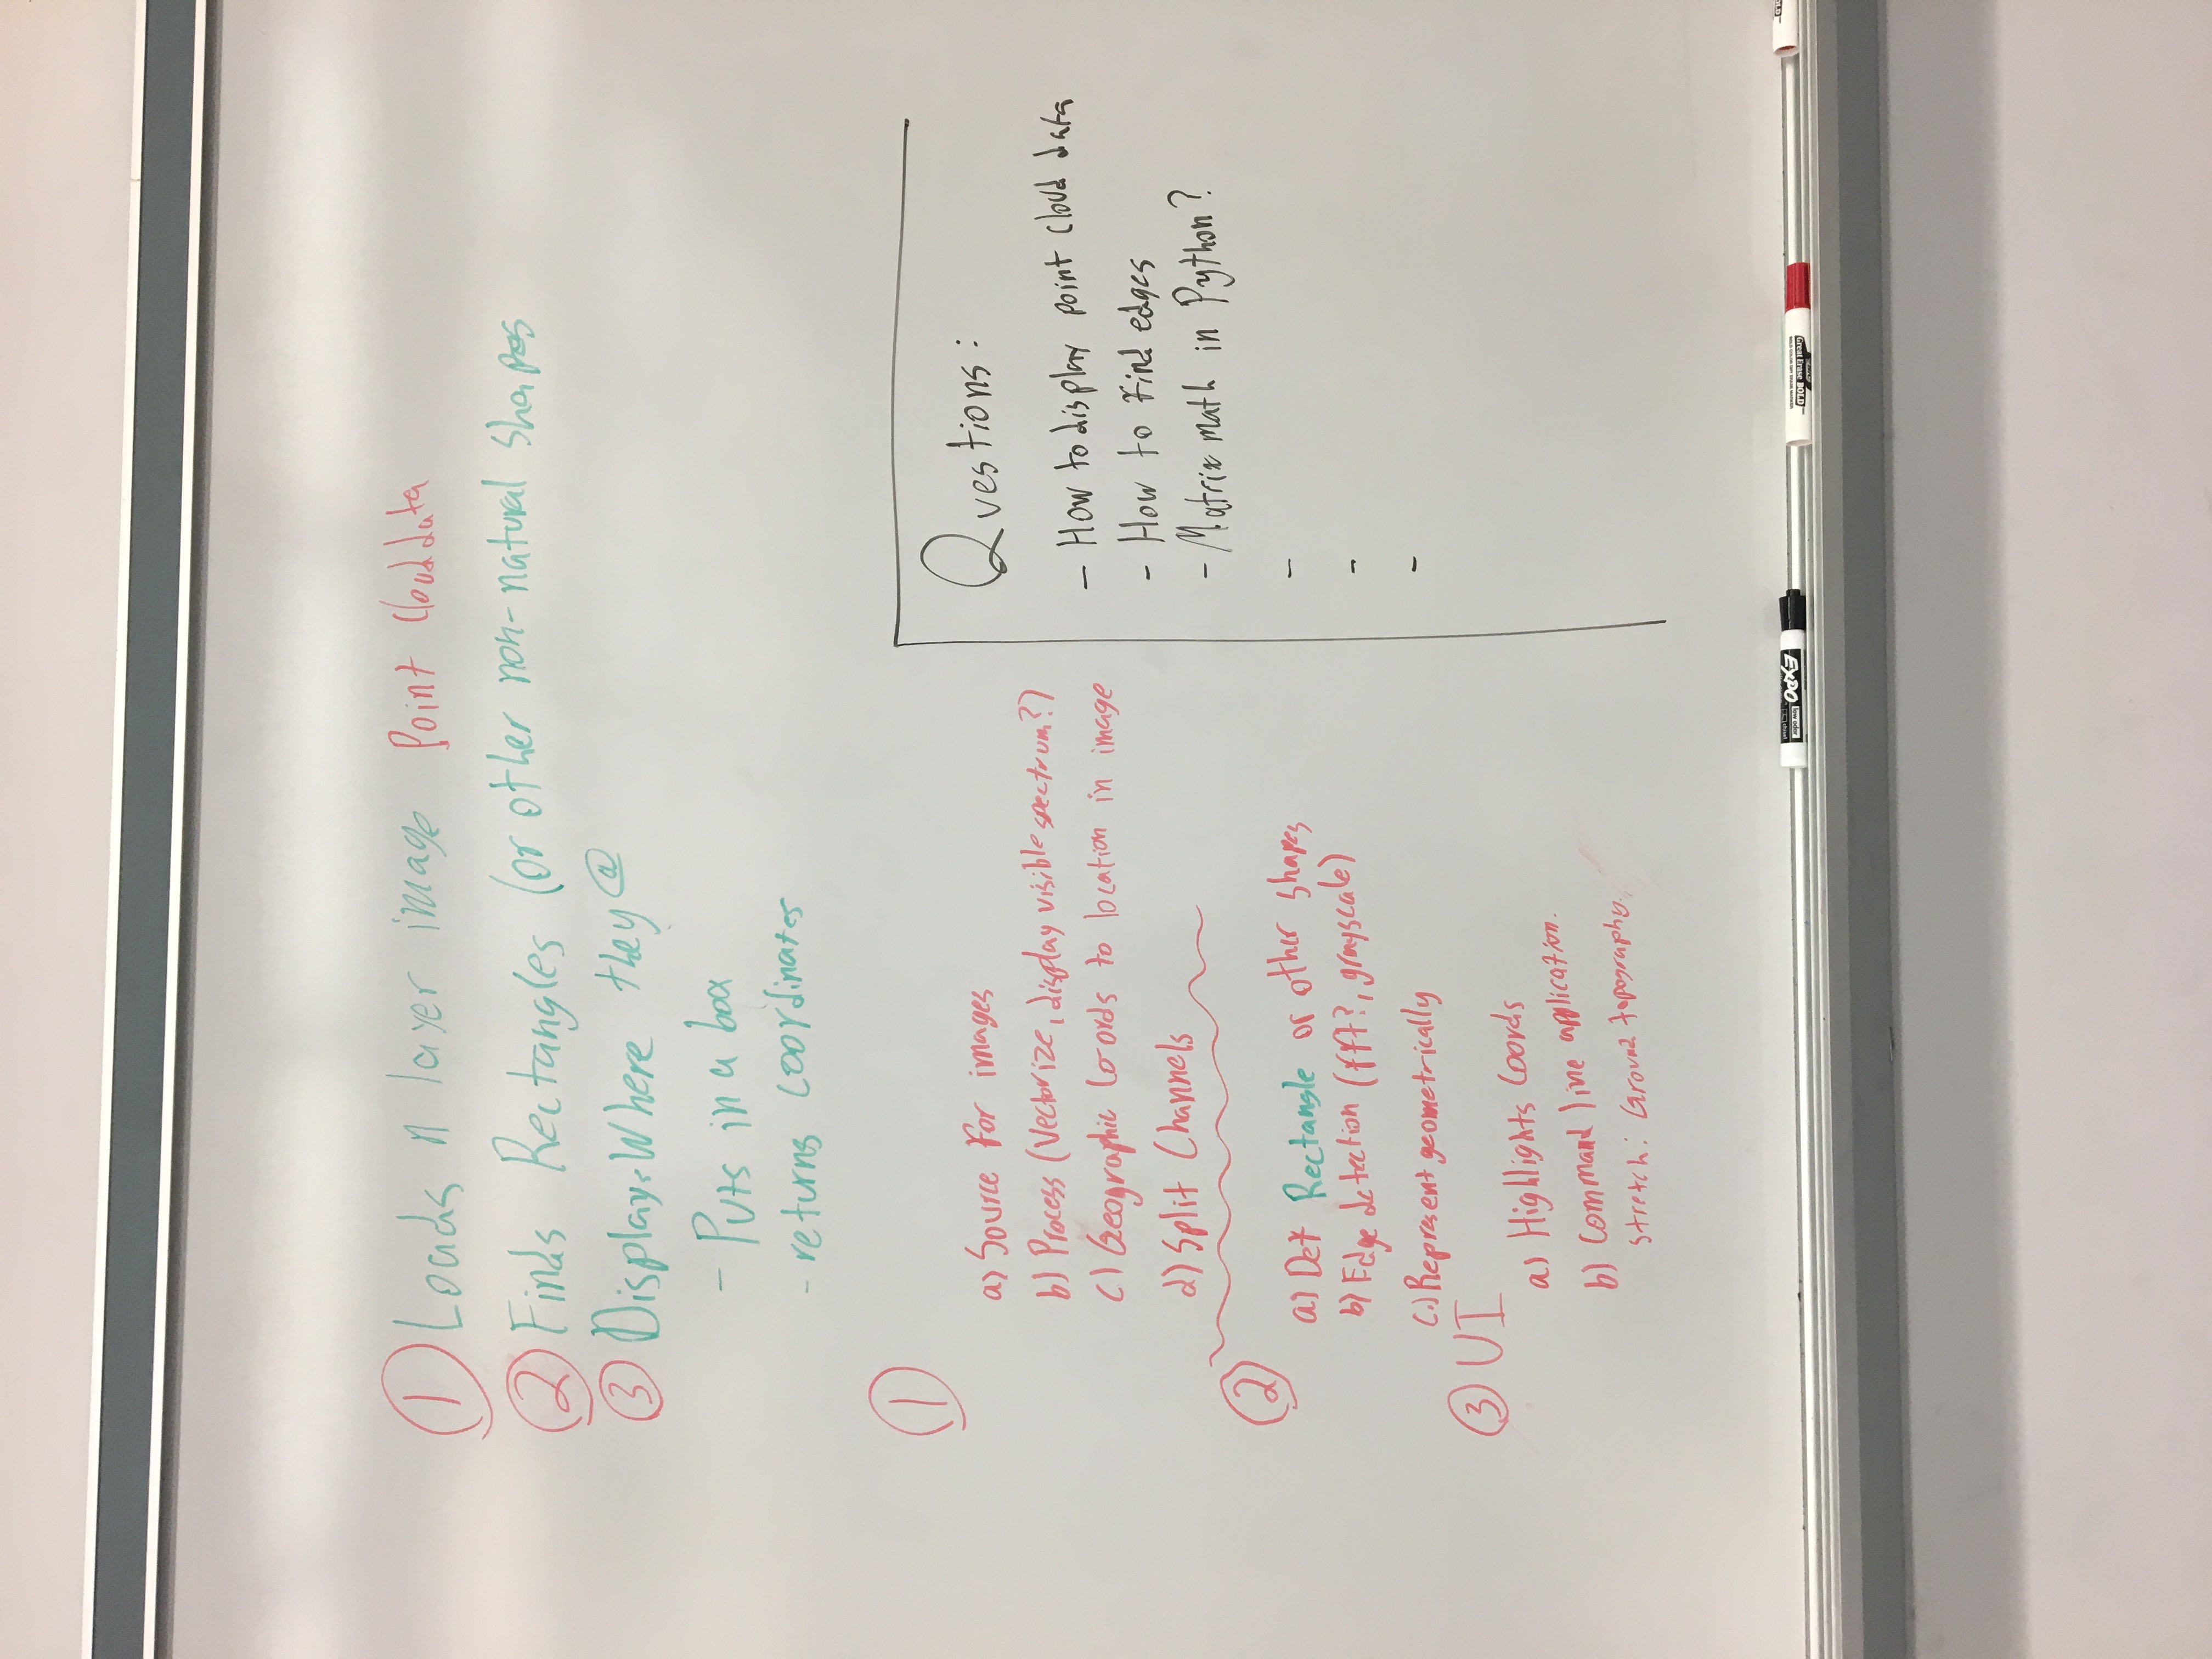 ① Loads n layer image Point Cloud data
② Finds Rectangles (or other non-natural shapes
③ Displays Where they @
- Puts in a box
- returns coordinates
①
a) Source For images
b) Process (Vectorize, display visible spectrum?)
c) Geographic Coords to location in image
d) Split Channels
②
a) Def Rectangle or other shapes
b) Edge detection (fft?, grayscale)
c) Represent geometrically
③ UI
a) Highlights Coords
b) Command line application.
stretch: Ground topography.
Questions:
- How to display point cloud data
- How to find edges
- Matrix math in Python?
-
-
-
EXPO
low odor
Great Erase BOLD